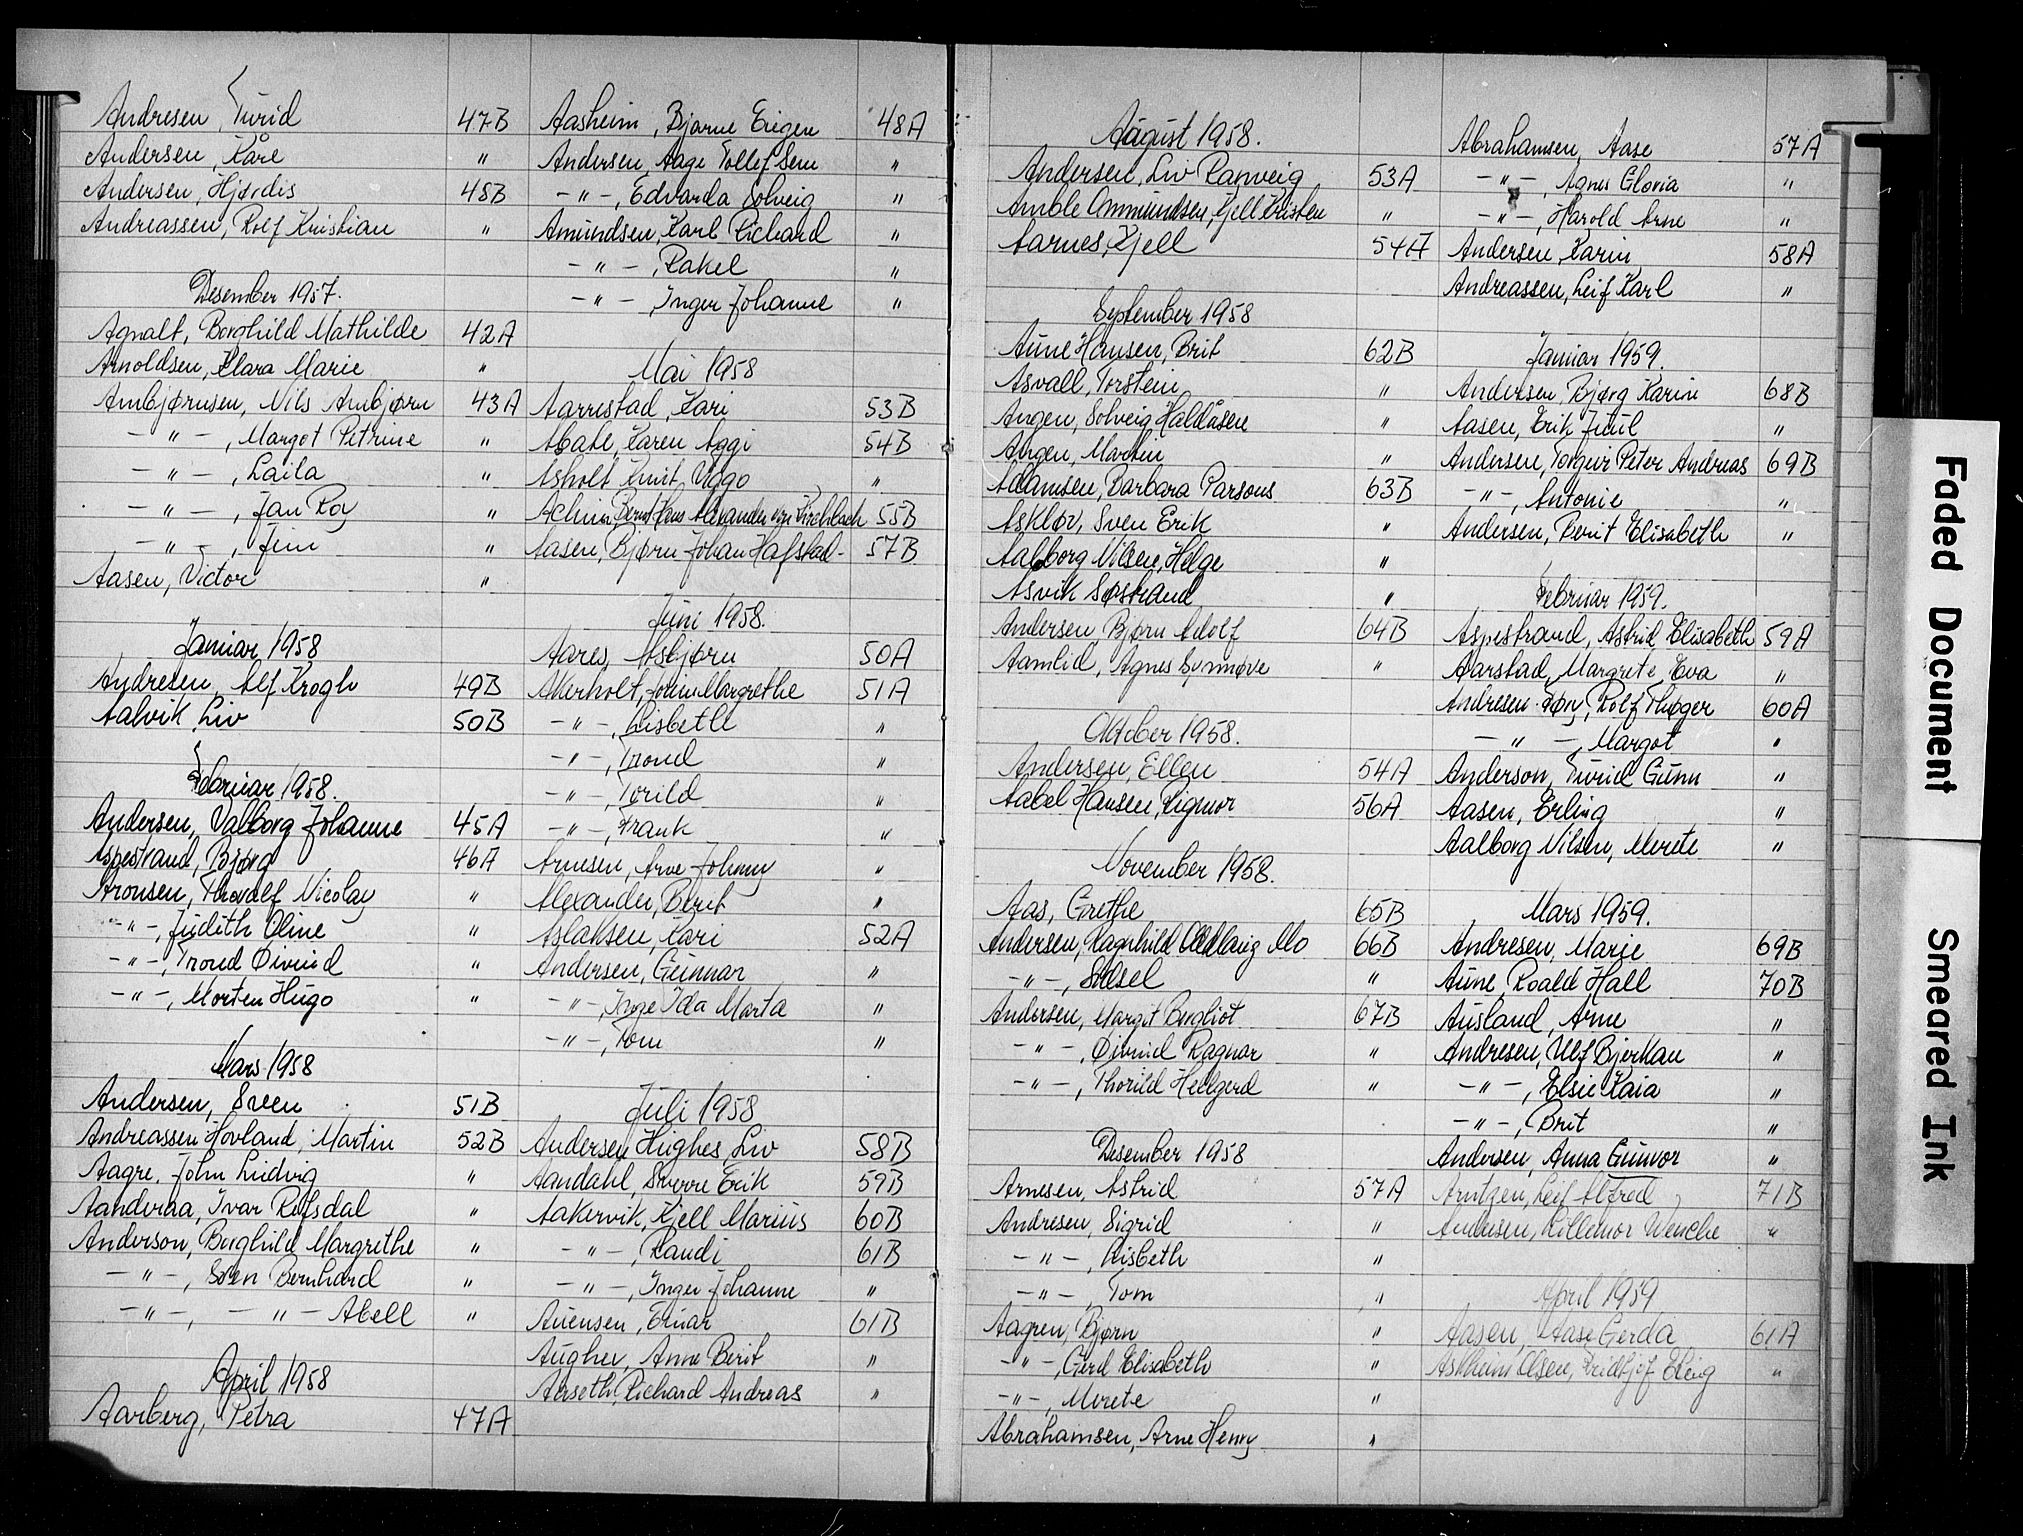 Andresen, Turid 47B
Andersen, Kåre "
Andersen, Hjørdis 48B
Andreassen, Rolf Kristian "
Desember 1957.
Agnalt, Borghild Mathilde 42A
Arnoldsen, Klara Marie "
Ambjørnsen, Nils Ambjørn 43A
- " -, Margot Petrine "
- " -, Laila "
- " -, Jan Roy "
- " -, Jim "
Aasen, Victor "
Januar 1958
Andresen, Alf Krogh 49B
Aalvik, Liv 50B
Februar 1958.
Andersen, Valborg Johanne 45A
Aspestrand, Bjørg 46A
Aronsen, Thoralf Nicolay "
- " -, Judith Oline "
- " -, Trond Øivind "
- " -, Morten Hugo "
Mars 1958
Andersen, Sven 51B
Andreassen Hovland, Martin 52B
Aagre, John Ludvig "
Aanderaa, Ivar Refsdal "
Anderson, Borghild Margrethe "
- " -, Sven Bernhard "
- " -, - " - Abell "
April 1958
Aarberg, Petra 47A
Aasheim, Bjarne Eugen 48A
Andersen, Aage Tollef Sem "
- " -, Edvarda Solveig "
Amundsen, Karl Richard "
- " -, Rakel "
- " -, Inger Johanne "
Mai 1958
Aarrestad, Kari 53B
Abate, Karen Aggi 54B
Asholt, Knut Viggo "
Achim, Bernt Hans Alexander von Kirchbach 55B
Aasen, Bjørn Johan Hafstad- 57B
Juni 1958.
Aares, Asbjørn 50A
Akerholt, Margrethe 51A
- " -, Lisbeth "
- " -, Trond "
- " -, Torild "
- " -, Frank "
Arnesen, Arve Johnny "
Alexander, Berit "
Aslaksen, Kari 52A
Andersen, Gunnar "
- " -, Inge Ida Marta "
- " -, Tom "
Juli 1958
Andersen Hughes, Liv 58B
Aandahl, Sverre Erik 59B
Aakervik, Kjell Marius 60B
- " -, Randi 61B
- " -, Inger Johanne "
Auensen, Einar 61B
Augher, Anne Berit "
Aaseth, Richard Andreas "
August 1958.
Andersen, Liv Ranveig 53A
Amble Ommundsen, Kjell Kristen "
Aarnes, Kjell 54A
September 1958
Aune Hansen, Brit 62B
Asvall, Torstein "
Angen, Solveig Haldåsen "
Angen, Martin "
Adamsen, Barbara Parsons 63B
Askløv, Sven Erik "
Aalborg Nilsen, Helge "
Asvik Søstrand "
Andersen, Bjørn Adolf 64B
Aamlid, Agnes Synnøve "
Oktober 1958.
Andersen, Ellen 54A
Aabel Hansen, Rigmor 56A
November 1958.
Aas, Grethe 65B
Andersen, Ragnhild Oddlaug Mo 66B
- " -, Sidsel "
Andersen, Margit Bergliot 67B
- " -, Øivind Ragnar "
- " -, Thorild Hellgerd "
Desember 1958
Arnesen, Astrid 57A
Andresen, Sigrid "
- " -, Lisbeth "
- " -, Tom "
Aagren, Bjørn "
- " -, Gerd Elisabeth "
- " -, Merete "
Abrahamsen, Arne Henry "
Abrahamsen, Aase 57A
- " -, Agnes Gloria "
- " -, Harold Arne "
Andersen, Karin 58A
Andreassen, Leif Karl "
Januar 1959.
Andersen, Bjørg Karin 68B
Aasen, Erik Juul "
Andersen, Torgeir Peter Andreas 69B
- " -, Antonie "
Andersen, Berit Elisabeth "
Februar 1959.
Aspestrand, Astrid Elisabeth 59A
Aarstad, Margrete Eva "
Andresen Tøn, Rolf Thøger 60A
- " -, Margot "
Anderson, Turid Gunn "
Aasen, Erling "
Aalborg Nilsen, Merete "
Mars 1959.
Andresen, Marie 69B
Aune, Roald Hall 70B
Ausland, Arne "
Andresen, Ulf Bjerkan "
- " -, Elsie Kaia "
- " -, Brit "
Andersen, Anna Gunvor "
Arntzen, Leif Alfred 71B
Andersen, Lillemor Wenche "
April 1959
Aasen, Aase Gerda 61A
Astheim Olsen, Fridtjof Elvig "
Faded Document
Smeared Ink